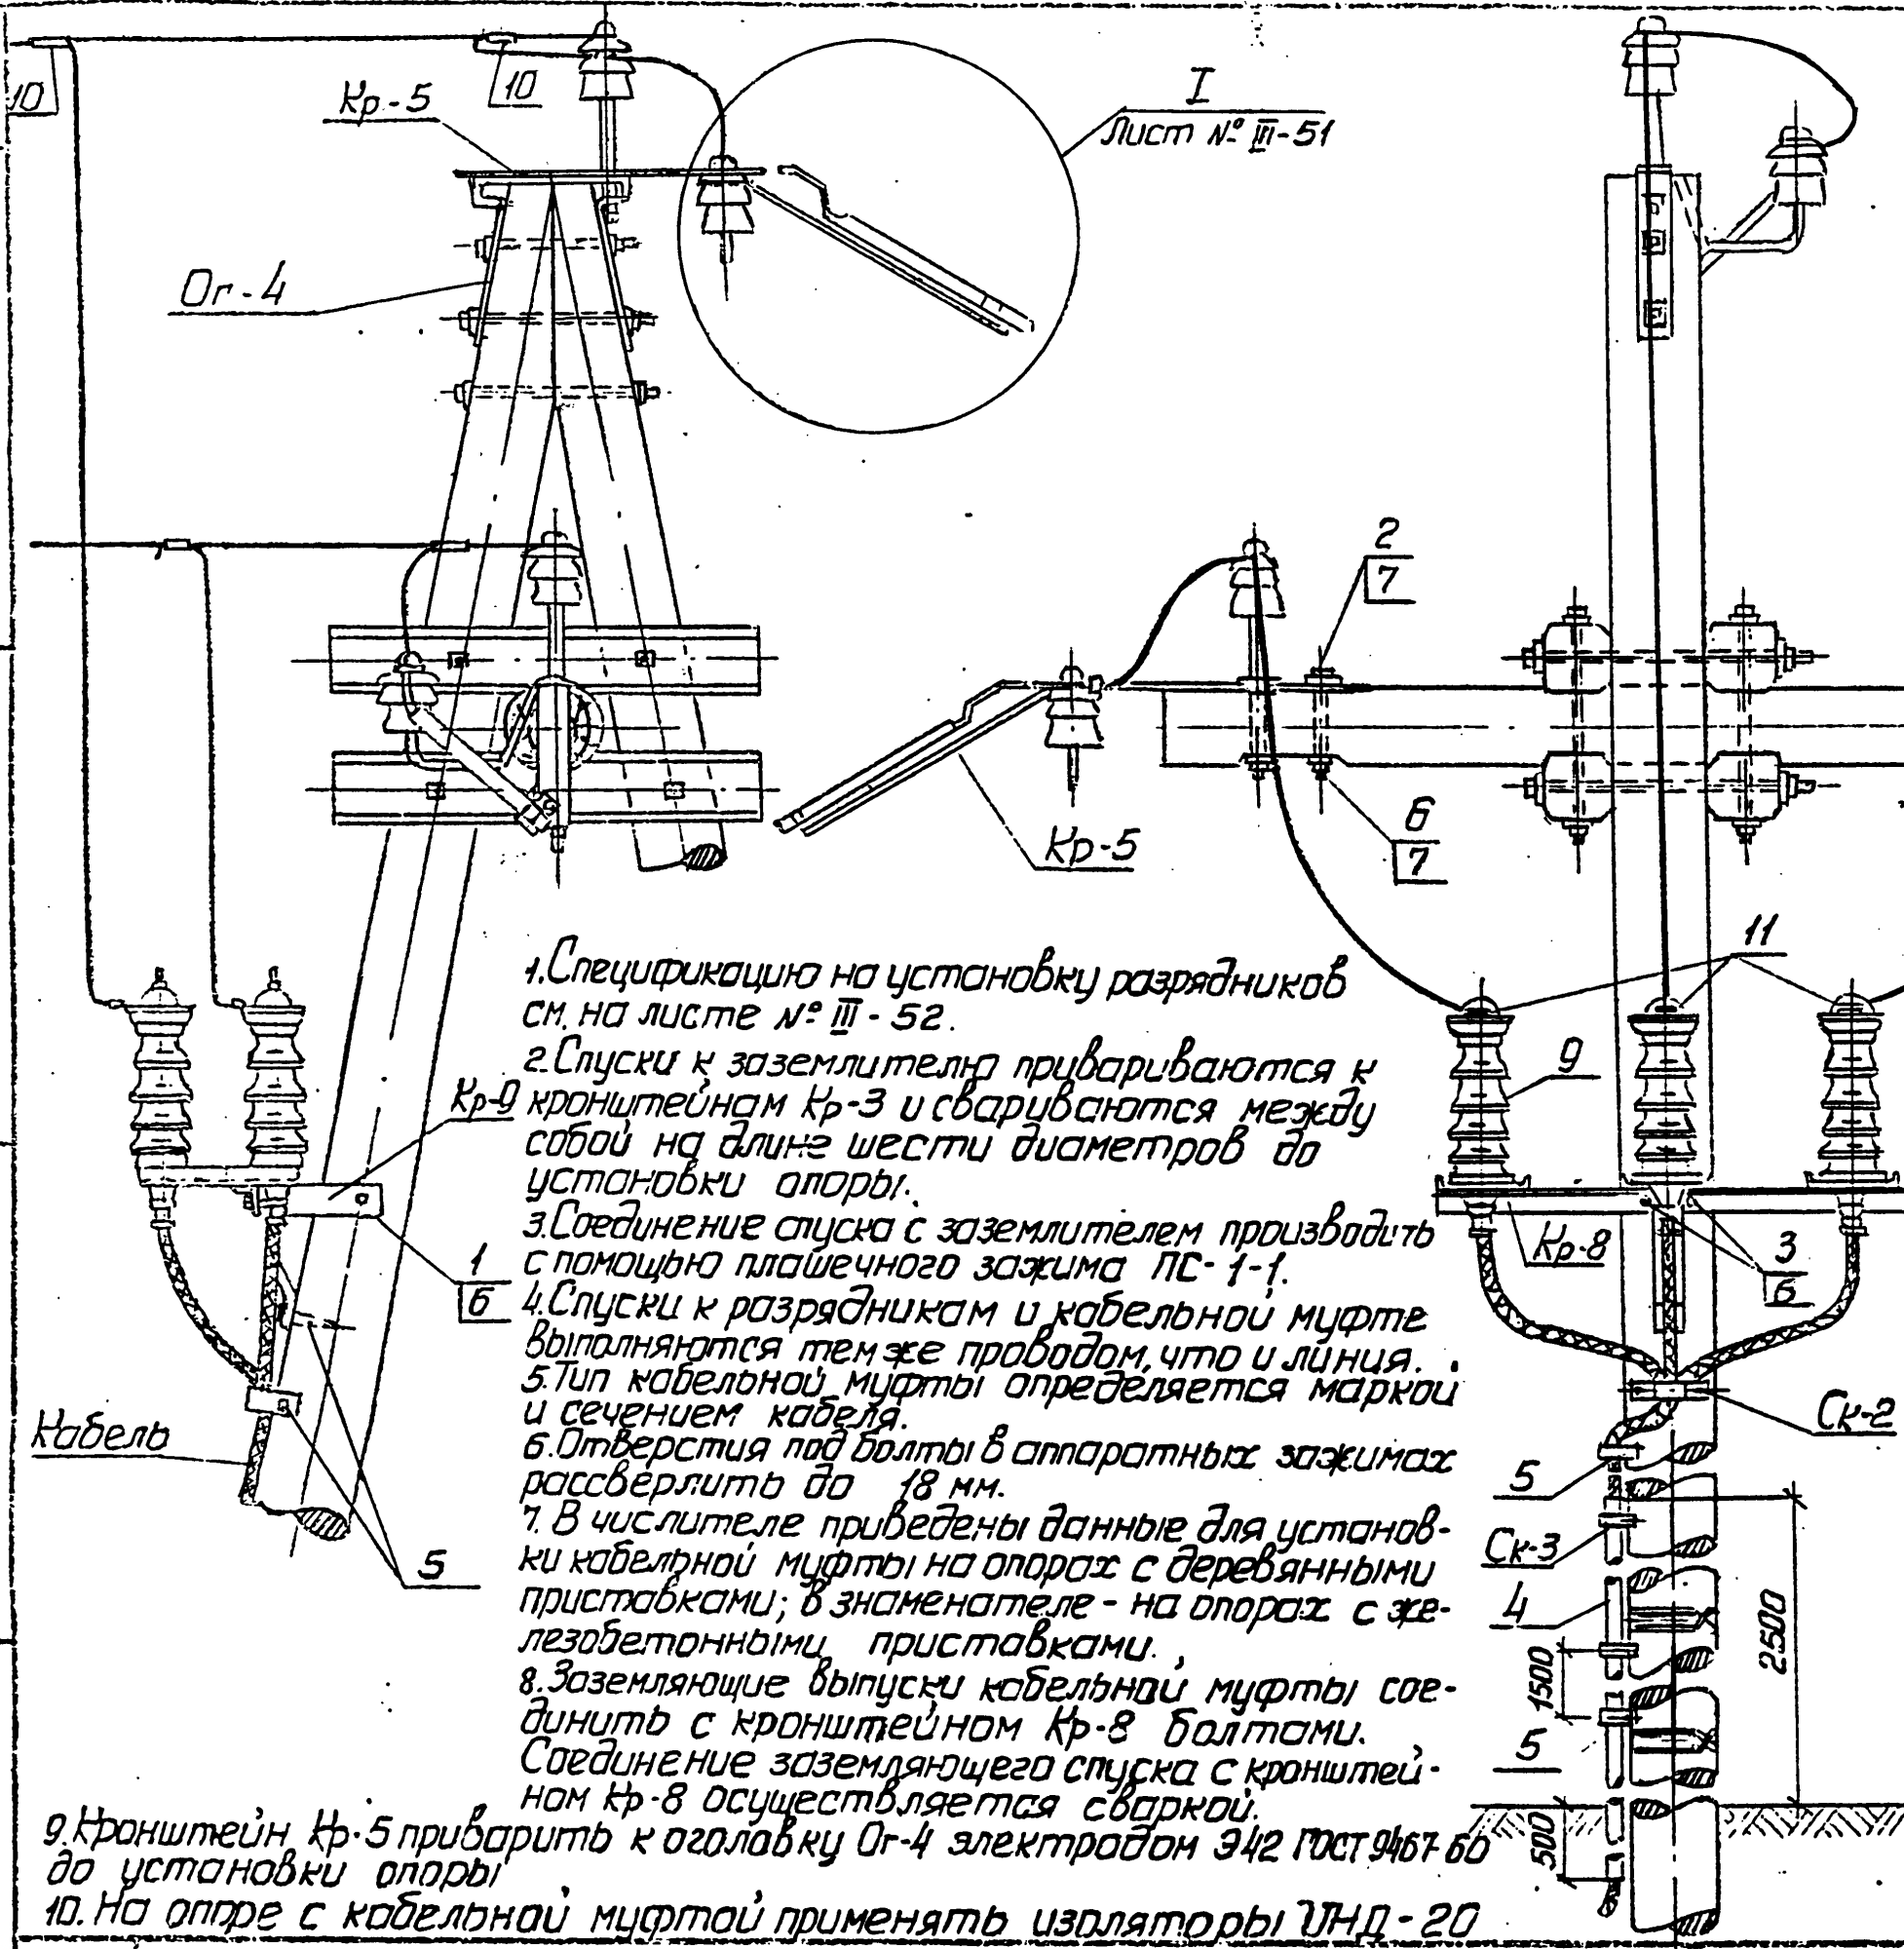 10
10
Кр-5
I
Лист № III-51
Ог-4
2
7
6
7
Кр-5
11
9
1.Спецификацию на установку разрядников
см. на листе № III - 52.
2.Спуски к заземлителю привариваются к
кронштейнам Кр-3 и свариваются между
собой на длине шести диаметров до
установки опоры.
3.Соединение спуска с заземлителем производить
с помощью плашечного зажима ПС-1-1.
4.Спуски к разрядникам и кабельной муфте
выполняются тем же проводом, что и линия.
5.Тип кабельной муфты определяется маркой
и сечением кабеля.
6.Отверстия под болты в аппаратных зажимах
рассверлить до 18 мм.
7. В числителе приведены данные для установ-
ки кабельной муфты на опорах с деревянными
приставками; в знаменателе - на опорах с же-
лезобетонными приставками.
8.Заземляющие выпуски кабельной муфты сое-
динить с кронштейном Кр-8 болтами.
Соединение заземляющего спуска с кронштей-
ном Кр-8 осуществляется сваркой.
9.Кронштейн Кр-5 приварить к оголовку Ог-4 электродом Э42 ГОСТ 9467-60
до установки опоры
10. На опоре с кабельной муфтой применять изоляторы ШНД-20
Кр-9
1
6
Кабель
5
Кр-8
3
6
Ск-2
5
Ск-3
4
5
1500
2500
500